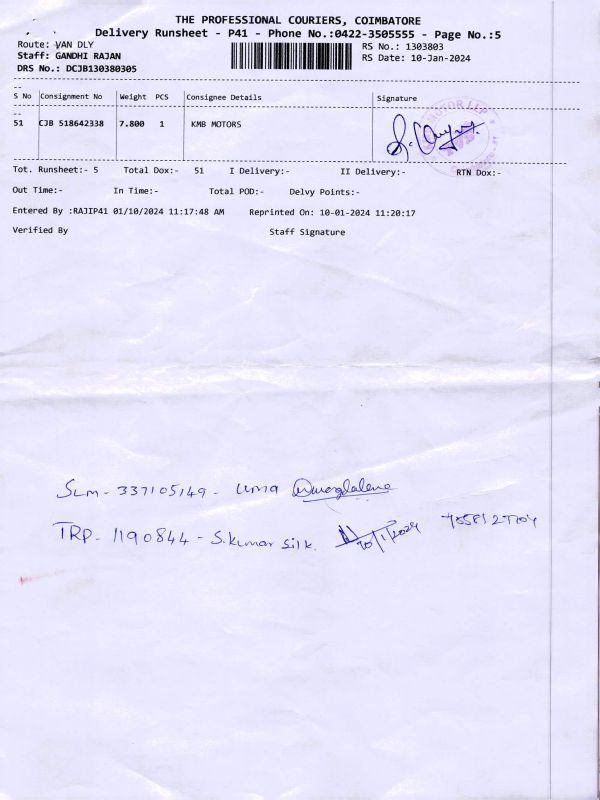 THE PROFESSIONAL COURIERS, COIMBATORE
Delivery Runsheet - P41 - Phone No.:0422-3505555 - Page No.:5
Route: VAN DLY
RS No.: 1303803
Staff: GANDHI RAJAN
RS Date: 10-Jan-2024
DRS No.: DCJB130380305
S No Consignment No Weight PCS Consignee Details Signature
51 CJB 518642338 7.800 1 KMB MOTORS
Tot. Runsheet:- 5 Total Dox:- 51 I Delivery:- II Delivery:- RTN Dox:-
Out Time:- In Time:- Total POD:- Delvy Points:-
Entered By :RAJIP41 01/10/2024 11:17:48 AM Reprinted On: 10-01-2024 11:20:17
Verified By Staff Signature
SLM - 337105149 - uma
TRP - 1190844 - S.kumar silk. 10/1/2024